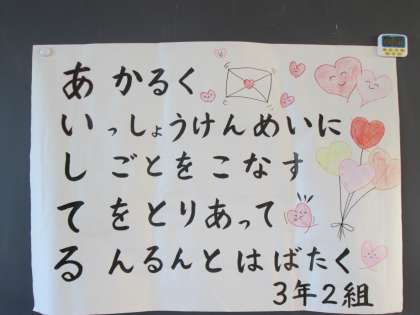 あかるく
いっしょうけんめいに
しごとをこなす
てをとりあって
るんるんとはばたく
3年2組